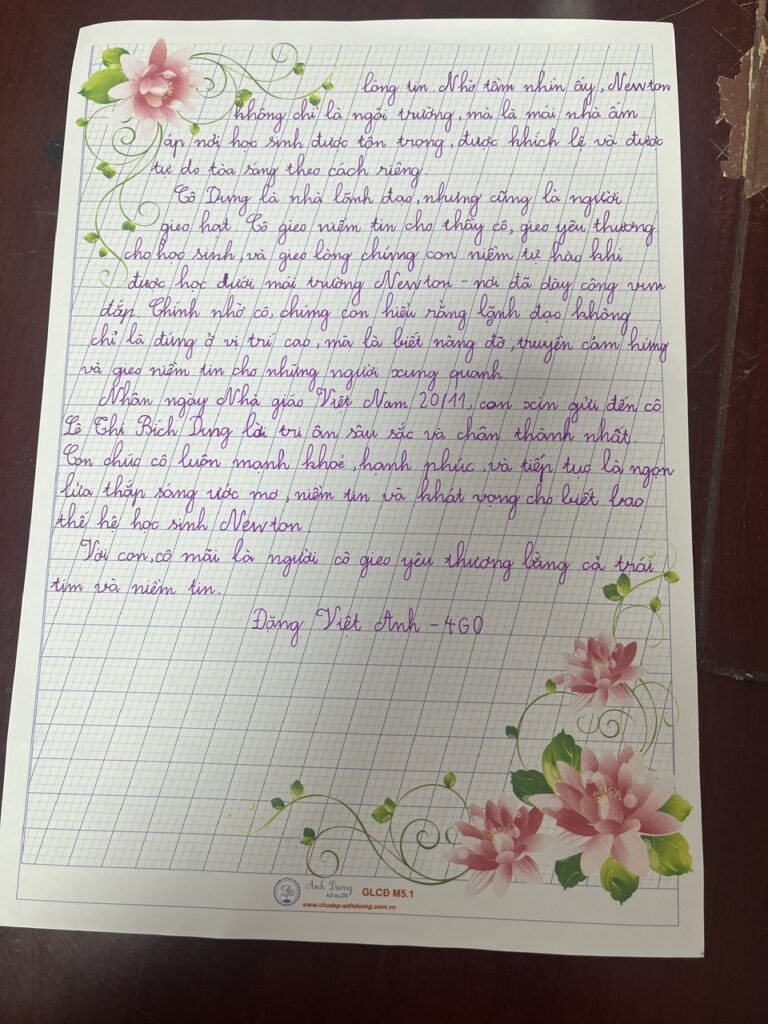 lòng tin. Nhờ tầm nhìn ấy, Newton
không chỉ là ngôi trường, mà là mái nhà ấm
áp nơi học sinh được tôn trọng, được khích lệ và được
tự do tỏa sáng theo cách riêng.
Cô Dung là nhà lãnh đạo, nhưng cũng là người
gieo hạt. Cô gieo niềm tin cho thầy cô, gieo yêu thương
cho học sinh, và gieo lòng chúng con niềm tự hào khi
được học dưới mái trường Newton - nơi đã dày công vun
đắp. Chính nhờ cô, chúng con hiểu rằng lãnh đạo không
chỉ là đứng ở vị trí cao, mà là biết nâng đỡ, truyền cảm hứng
và gieo niềm tin cho những người xung quanh.
Nhân ngày Nhà giáo Việt Nam 20/11, con xin gửi đến cô
Lê Thị Bích Dung lời tri ân sâu sắc và chân thành nhất.
Con chúc cô luôn mạnh khoẻ, hạnh phúc, và tiếp tục là ngọn
lửa thắp sáng ước mơ, niềm tin và khát vọng cho biết bao
thế hệ học sinh Newton.
Với con, cô mãi là người cô gieo yêu thương bằng cả trái
tim và niềm tin.
Đặng Việt Anh - 4G0
Ánh Dương
A.D co.,LTD
GLCĐ M5.1
www.chudep-anhduong.com.vn